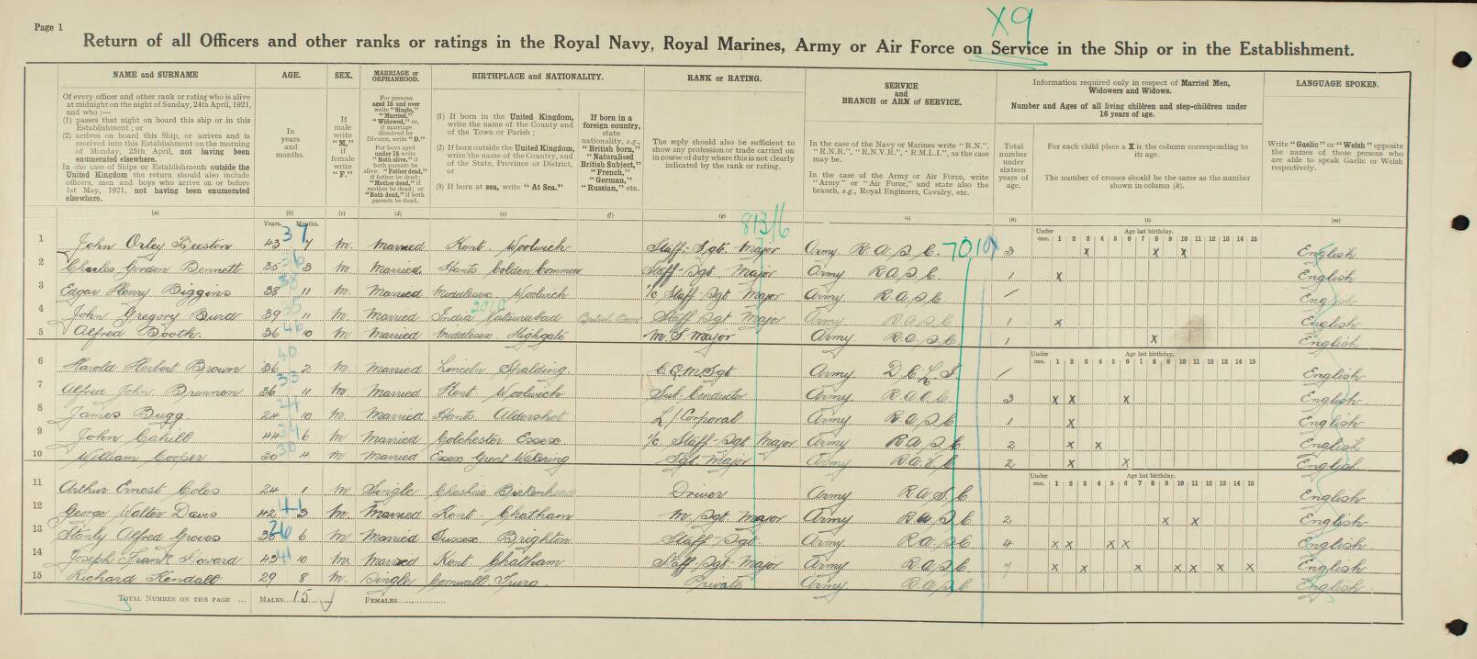 Page 1
X9
Return of all Officers and other ranks or ratings in the Royal Navy, Royal Marines, Army or Air Force on Service in the Ship or in the Establishment.
NAME and SURNAME
Of every officer and other rank or rating who is alive at midnight on the night of Sunday, 24th April, 1921, and who :—
(1) passes that night on board this ship or in this Establishment ; or
(2) arrives on board this Ship, or arrives and is received into this Establishment on the morning of Monday, 25th April, not having been enumerated elsewhere.
In the case of Ships or Establishments outside the United Kingdom the return should also include officers, men and boys who arrive on or before 1st May, 1921, not having been enumerated elsewhere.
AGE.
In years and months.
SEX.
If male write "M," if female write "F."
MARRIAGE or ORPHANHOOD.
For persons aged 15 and over write "Single," "Married," "Widowed," or, if marriage dissolved by Divorce, write "D."
For boys aged under 15 write "Both alive," if both parents be alive; "Father dead," if father be dead; "Mother dead," if mother be dead; or "Both dead," if both parents be dead.
BIRTHPLACE and NATIONALITY.
(1) If born in the United Kingdom, write the name of the County and of the Town or Parish ;
(2) If born outside the United Kingdom, write the name of the Country, and of the State, Province or District, or
(3) If born at sea, write "At Sea."
If born in a foreign country, state nationality, e.g., "British born," "Naturalised British Subject," "French," "German," "Russian," etc.
RANK or RATING.
The reply should also be sufficient to show any profession or trade carried on in course of duty where this is not clearly indicated by the rank or rating.
SERVICE and BRANCH or ARM of SERVICE.
In the case of the Navy or Marines write "R.N.", "R.N.R.", "R.N.V.R.", "R.M.L.I.", as the case may be.
In the case of the Army or Air Force, write "Army" or "Air Force," and state also the branch, e.g., Royal Engineers, Cavalry, etc.
Information required only in respect of Married Men, Widowers and Widows.
Number and Ages of all living children and step-children under 16 years of age.
Total number under sixteen years of age.
For each child place a X in the column corresponding to its age.
The number of crosses should be the same as the number shown in column (k).
LANGUAGE SPOKEN.
Write "Gaelic" or "Welsh" opposite the names of those persons who are able to speak Gaelic or Welsh respectively.
(a) (b) (c) (d) (e) (f) (g) (m)
813/6
Years. Months.
Under one. Age last birthday. 1 2 3 4 5 6 7 8 9 10 11 12 13 14 15
1 John Beeston 43 7 M. Married Kent Woolwich Staff-Sgt Major Army R.A.S.C. 3 X X X English
2 Charles Gordon Bennett 35 3 M. Married Hants Colden Common Staff-Sgt Major Army R.A.S.C. 1 X English
3 Edgar Henry Biggins 38 11 M. Married Middlesex Woolwich Staff Sgt Major Army R.A.S.C. / English
4 John Gregory Burd 39 11 M. Married India Staff Sgt Major Army R.A.S.C. 1 X English
5 Alfred Booth. 36 10 M. Married Middlesex Highgate M. S. Major Army R.A.S.C. 1 X English
Under one. Age last birthday. 1 2 3 4 5 6 7 8 9 10 11 12 13 14 15
6 Harold Herbert Brown 36 2 M. Married Lincoln Spalding C.Q.M.Sgt Army D.C.L.I. / English
7 Alfred John Brennan 36 11 M. Married Kent Woolwich Sub-Conductor Army R.A.O.C. 3 X X X English
8 James Bugg 24 10 M. Married Hants Aldershot L/Corporal Army R.A.S.C. 1 X English
9 John Cahill 44 6 M. Married Colchester Essex Staff-Sgt Major Army R.A.S.C. 2 X X English
10 William Cooper 30 4 M. Married Essex Great Wakering Sgt-Major Army R.A.V.C. 2 X X English
Under one. Age last birthday. 1 2 3 4 5 6 7 8 9 10 11 12 13 14 15
11 Arthur Ernest Coles 24 1 M. Single Cheshire Birkenhead Driver Army R.A.S.C. English
12 George Walter Davis 42 3 M. Married Kent Chatham M. Sgt Major Army R.A.S.C. 2 X X English
13 Stanly Alfred Groves 36 6 M. Married Sussex Brighton Staff Sgt Army R.A.S.C. 4 X X X X English
14 Joseph Frank Howard 43 10 M. Married Kent Chatham Staff-Sgt-Major Army R.A.S.C. X X X X X X X English
15 Richard Kendall 29 8 M. Single Cornwall Truro Private Army R.A.S.C. English
TOTAL NUMBER ON THIS PAGE ... MALES 15 FEMALES